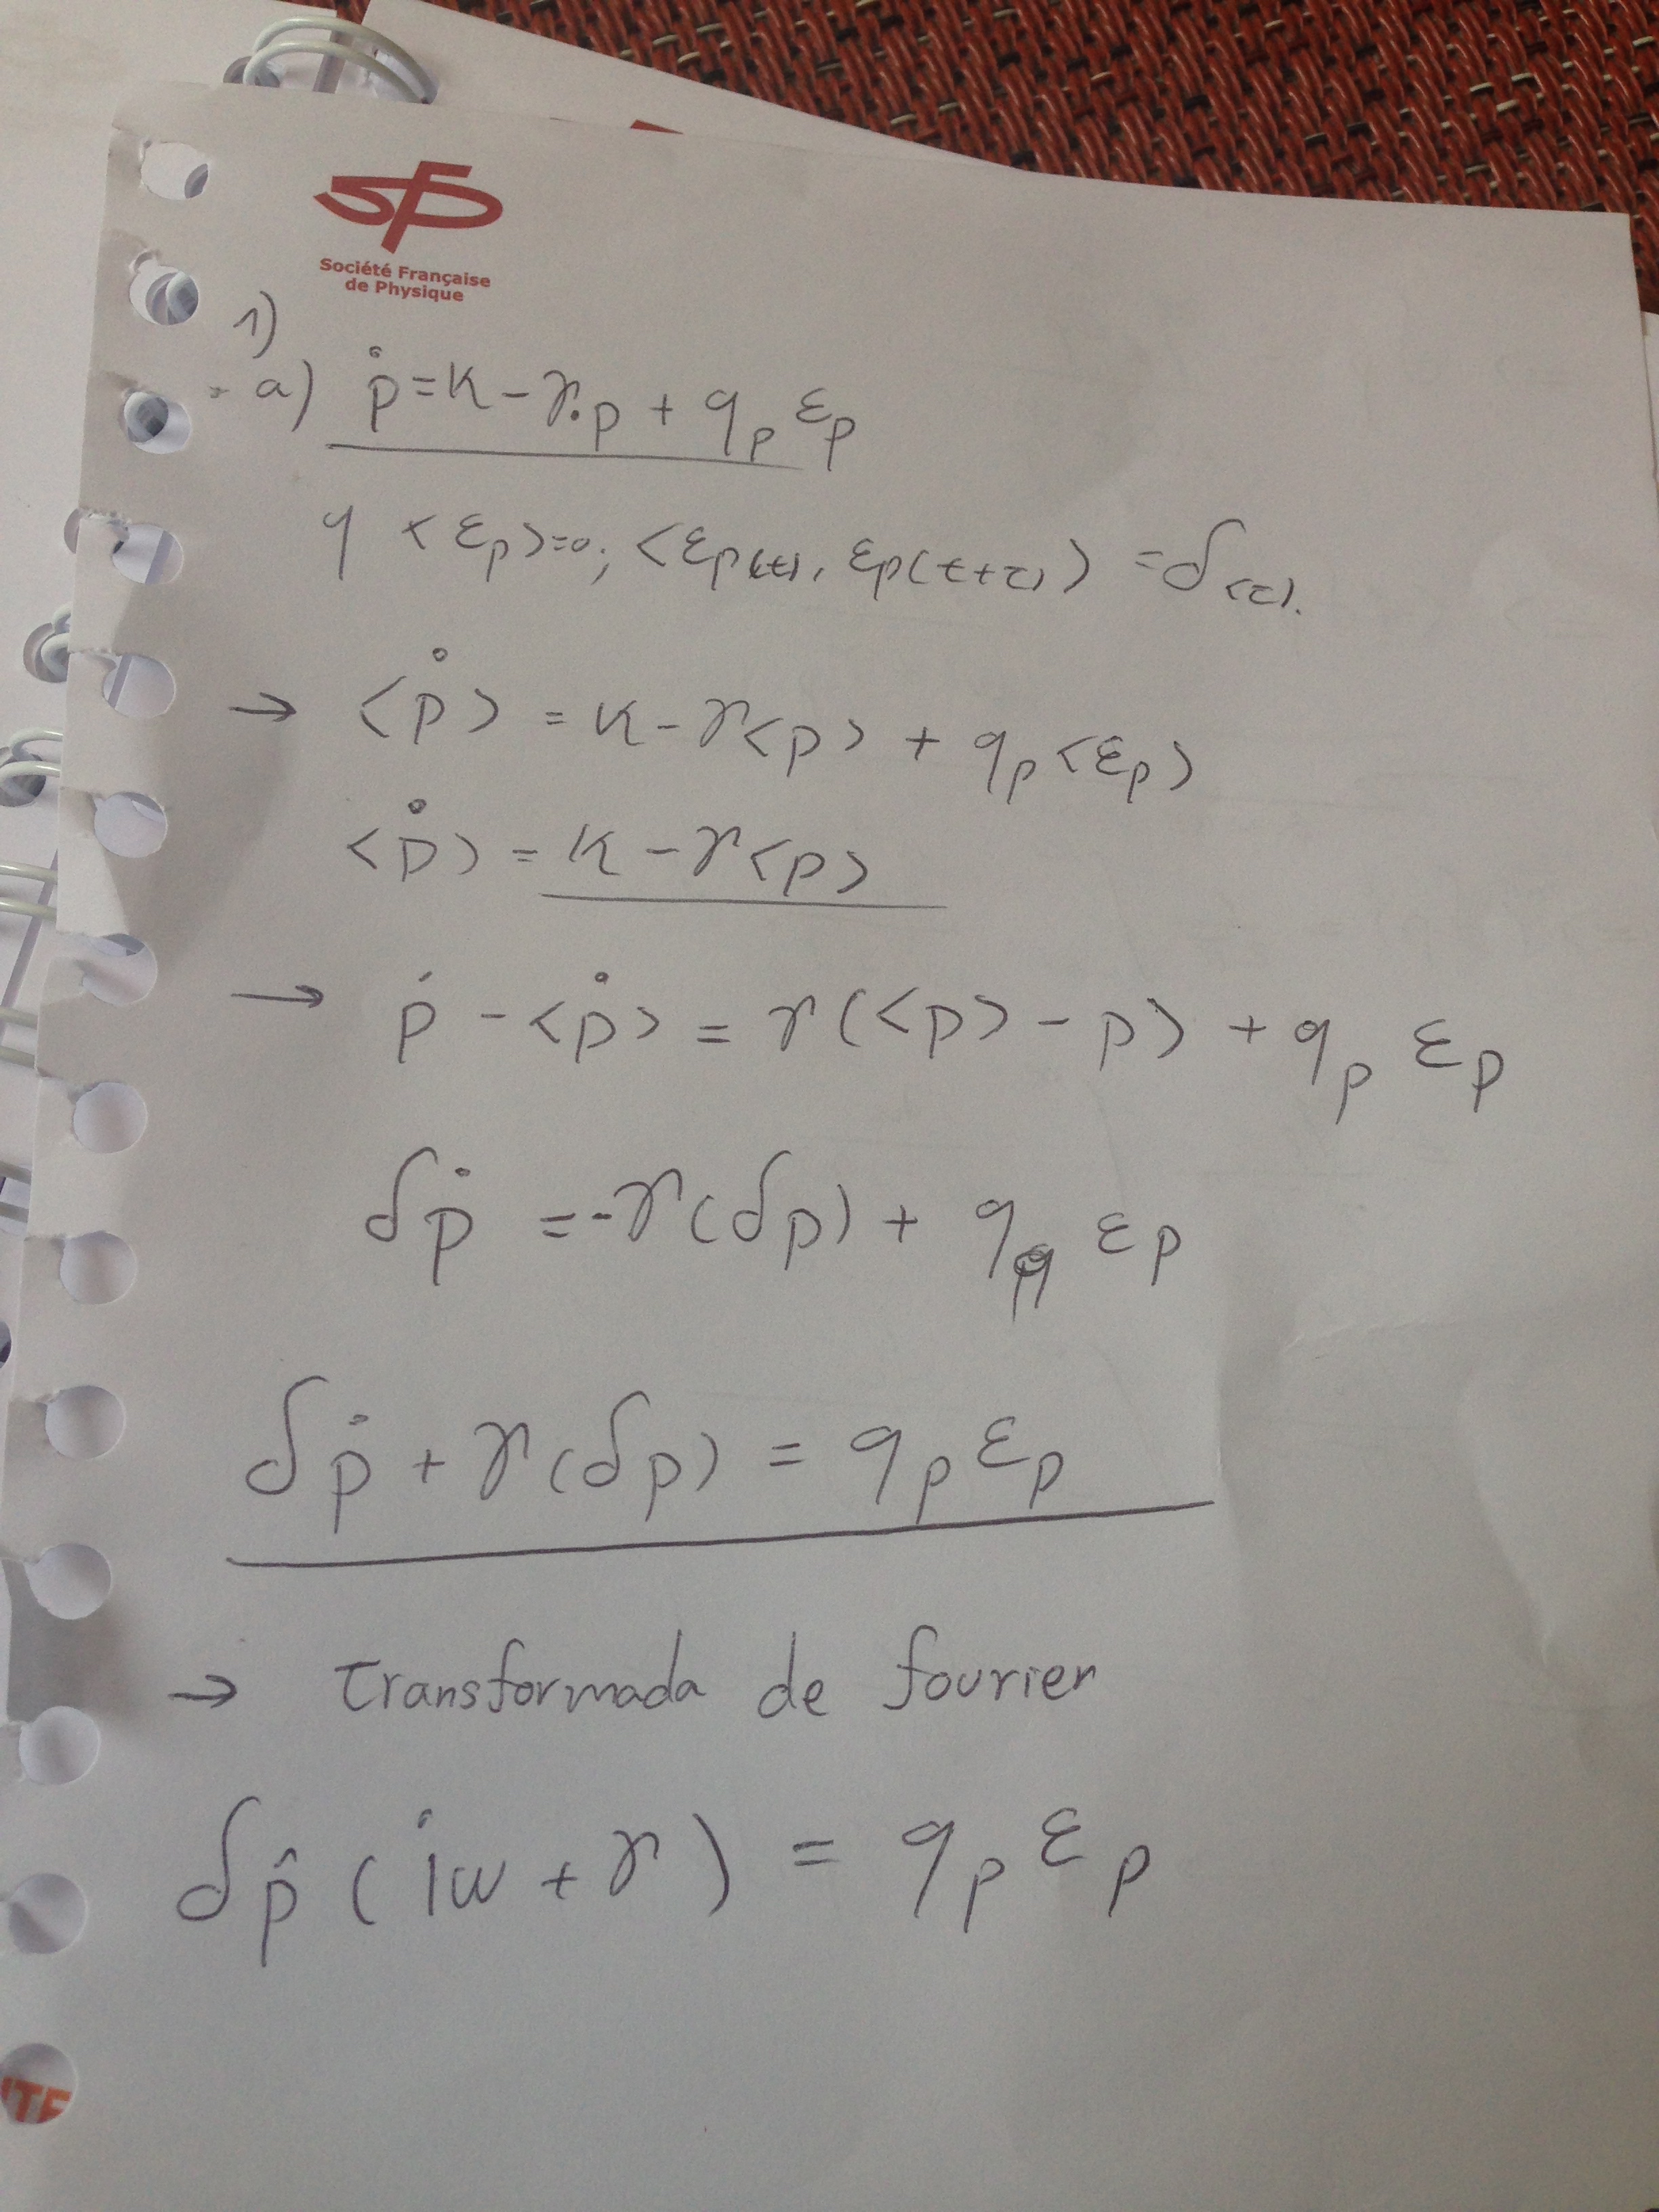 Société Française
de Physique
1)
a) ṗ = K - γ·p + q_p ε_p
y <ε_p>=0; <ε_p(t), ε_p(t+τ)> = δ(τ).
→ <ṗ> = K - γ<p> + q_p<ε_p>
<ṗ> = K - γ<p>
→ ṗ - <ṗ> = γ(<p> - p) + q_p ε_p
δṗ = -γ(δp) + q_p ε_p
δṗ + γ(δp) = q_p ε_p
→ transformada de fourier
δp̂ (iw + γ) = q_p ε_p